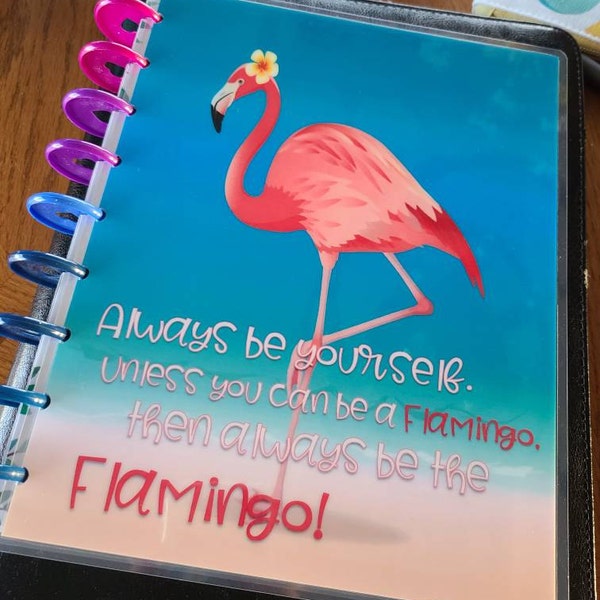 Always be yourself.
Unless you can be a Flamingo,
then always be the
Flamingo!